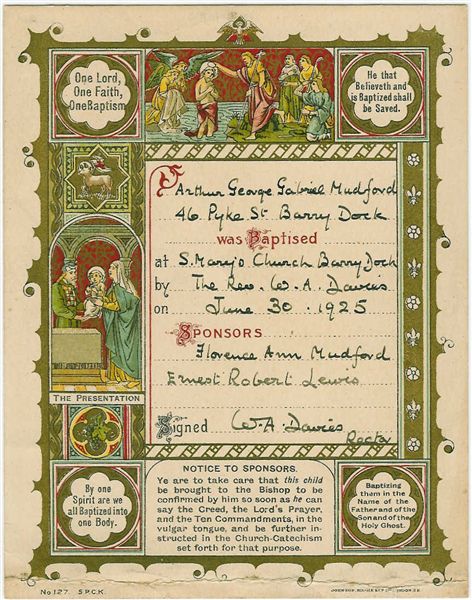 One Lord,
One Faith,
One Baptism
He that
Believeth and
is Baptized shall
be Saved.
Arthur George Gabriel Mudford
46. Pyke St. Barry Dock
was Baptised
at S. Mary's Church Barry Dock
by The Rev. W. A. Davies
on June 30. 1925
SPONSORS
Florence Ann Mudford
Ernest Robert Lewis
THE PRESENTATION
Signed W. A. Davies
Rector
By one
Spirit are we
all Baptized into
one Body.
NOTICE TO SPONSORS.
Ye are to take care that this child
be brought to the Bishop to be
confirmed by him so soon as he can
say the Creed, the Lord's Prayer,
and the Ten Commandments, in the
vulgar tongue, and be further in-
structed in the Church-Catechism
set forth for that purpose.
Baptizing
them in the
Name of the
Father and of the
Son and of the
Holy Ghost.
No 127. S.P.C.K.